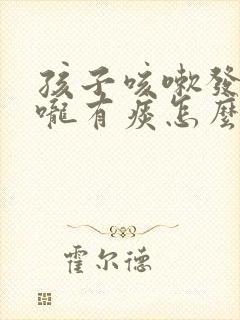 孩子咳嗽發
嚨有痰怎麼
霍尔德